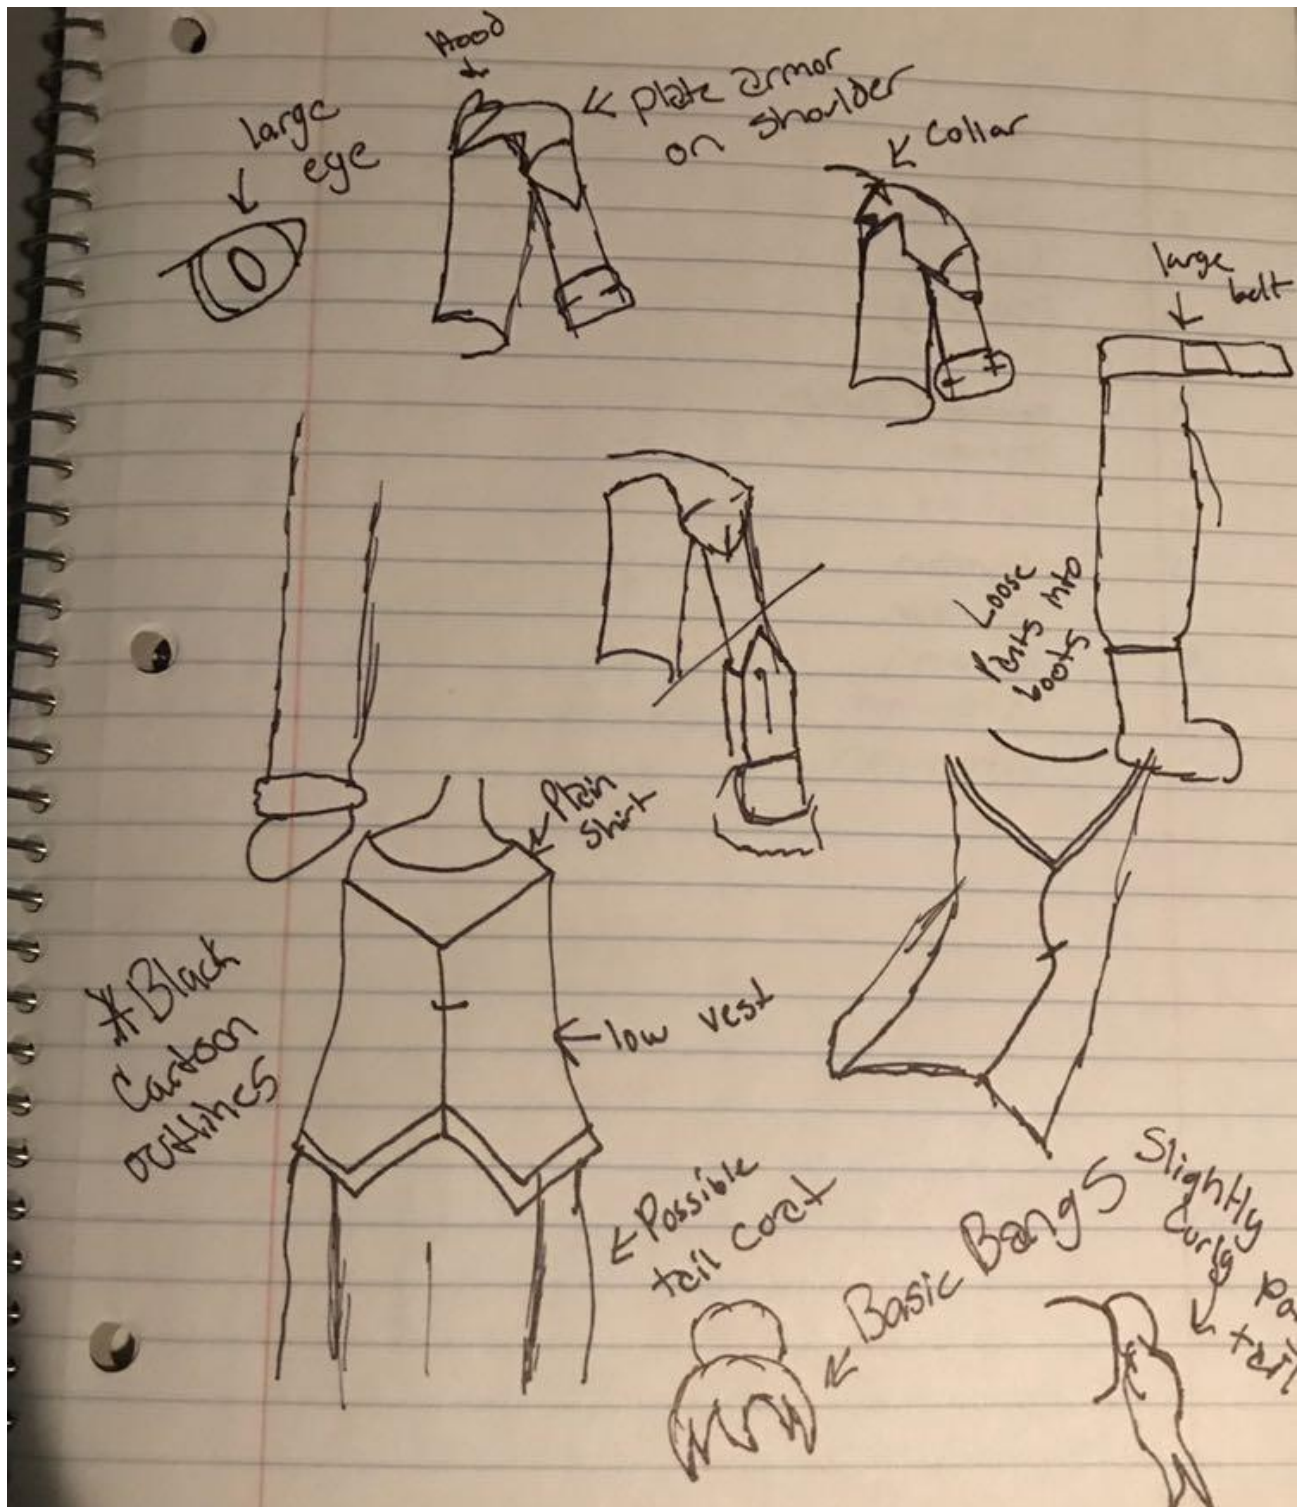 Hood
large
eye
plate armor
on shoulder
Collar
large
belt
Loose
Pants into
boots
Plain
Shirt
*Black
Cartoon
outlines
low vest
Possible
tail coat
Basic Bangs
Slightly
Curly